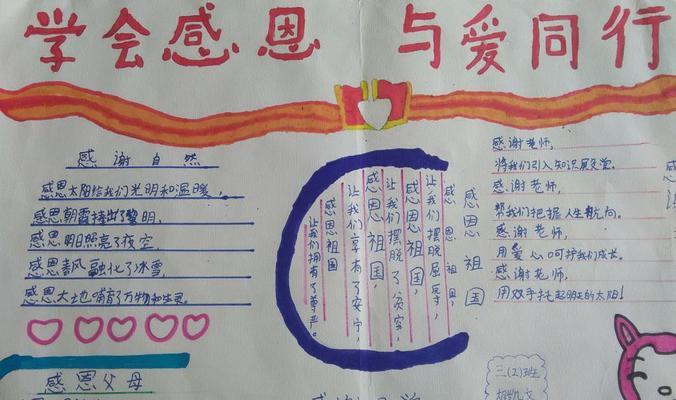 学会感恩 与爱同行
感谢自然
感恩太阳给我们光明和温暖,
感恩朝霞捧出了黎明,
感恩明日照亮了夜空,
感恩春风融化了冰雪,
感恩大地哺育了万物和生灵。
感恩父母
感恩祖国
感恩祖国,
让我们摆脱屈辱,
感恩祖国,
让我们摆脱了贫穷,
感恩祖国,
让我们享有了安宁,
感恩祖国
让我们拥有了尊严。
感谢老师,
将我们引入知识殿堂。
感谢老师,
帮我们把握人生航向。
感谢老师,
用爱心呵护我们成长。
感谢老师,
用双手托起明天的太阳!
三(2)班